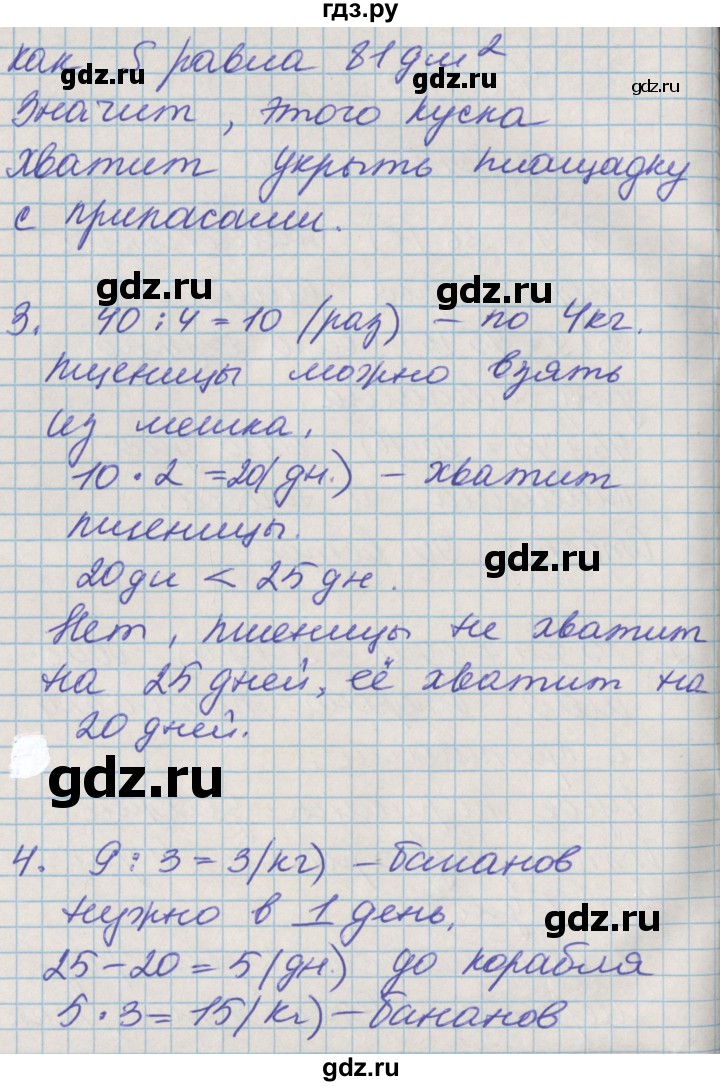 гдз.ру
как S равна 81 дм²
gdz.ru gdz.ru gdz.ru
Значит, этого куска
хватит укрыть площадку
с припасами.
gdz.ru gdz.ru
3. 40 : 4 = 10 (раз) – по 4кг.
пщеницы можно взять
из мешка.
10 · 2 = 20(дн.) – хватит
пшеницы.
gdz.ru
20дн < 25 дн.
Нет, пшеницы не хватит
на 25 дней, её хватит на
20 дней.
gdz.ru
4. 9 : 3 = 3(кг) – бананов
нужно в 1 день.
gdz.ru
25 – 20 = 5(дн.) до корабля
5 · 3 = 15(кг) – бананов
gdz.ru
gdz.ru